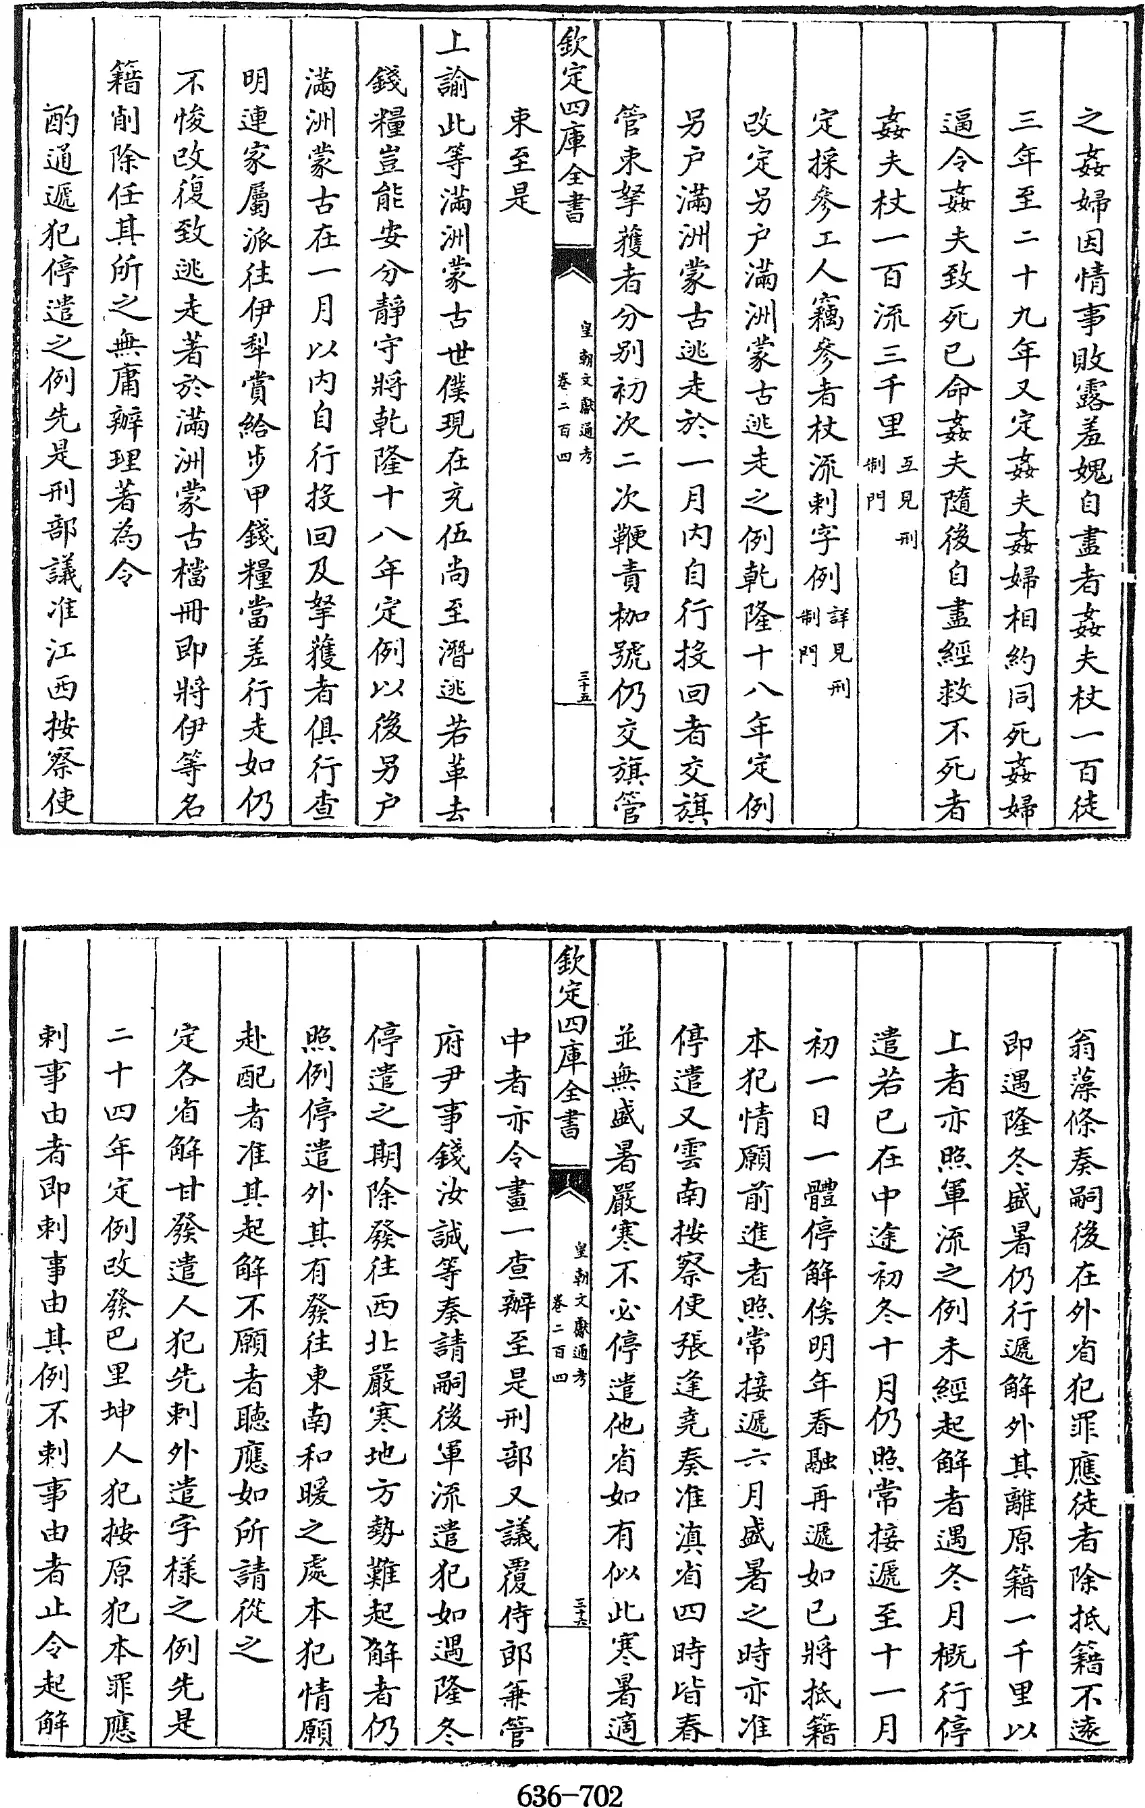 之姦婦因情事敗露羞媿自盡者姦夫杖一百徒
三年至二十九年又定姦夫姦婦相約同死姦婦
逼令姦夫致死已命姦夫隨後自盡經救不死者
姦夫杖一百流三千里互見刑制門
定採參工人竊參者杖流刺字例詳見刑制門
改定另户滿洲蒙古逃走之例乾隆十八年定例
另户滿洲蒙古逃走於一月内自行投回者交旗
管束拏獲者分别初次二次鞭責枷號仍交旗管
欽定四庫全書
皇朝文獻通考
卷二百四
三十五
束至是
上諭此等滿洲蒙古世僕現在充伍尚至潛逃若革去
錢糧豈能安分靜守將乾隆十八年定例以後另户
滿洲蒙古在一月以内自行投回及拏獲者俱行查
明連家屬派往伊犁賞給步甲錢糧當差行走如仍
不悛改復致逃走著於滿洲蒙古檔冊即將伊等名
籍削除任其所之無庸辦理著為令
酌通遞犯停遣之例先是刑部議准江西按察使
翁藻條奏嗣後在外省犯罪應徒者除抵籍不遠
即遇隆冬盛暑仍行遞解外其離原籍一千里以
上者亦照軍流之例未經起解者遇冬月概行停
遣若已在中途初冬十月仍照常接遞至十一月
初一日一體停解俟明年春融再遞如已將抵籍
本犯情願前進者照常接遞六月盛暑之時亦准
停遣又雲南按察使張逢堯奏准滇省四時皆春
並無盛暑嚴寒不必停遣他省如有似此寒暑適
欽定四庫全書
皇朝文獻通考
卷二百四
三十六
中者亦令畫一查辦至是刑部又議覆侍郎兼管
府尹事錢汝誠等奏請嗣後軍流遣犯如遇隆冬
停遣之期除發往西北嚴寒地方勢難起解者仍
照例停遣外其有發往東南和暖之處本犯情願
赴配者准其起解不願者聽應如所請從之
定各省解甘發遣人犯先刺外遣字樣之例先是
二十四年定例改發巴里坤人犯按原犯本罪應
刺事由者即刺事由其例不刺事由者止令起解
636-702